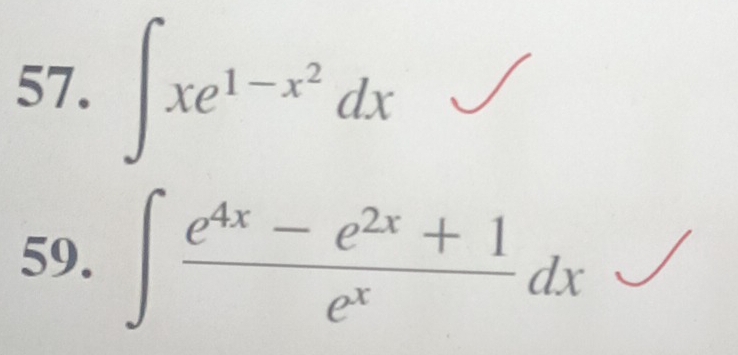 57. ∫ xe^{1−x²} dx ✓
59. ∫ (e^{4x} − e^{2x} + 1)/(e^x) dx ✓